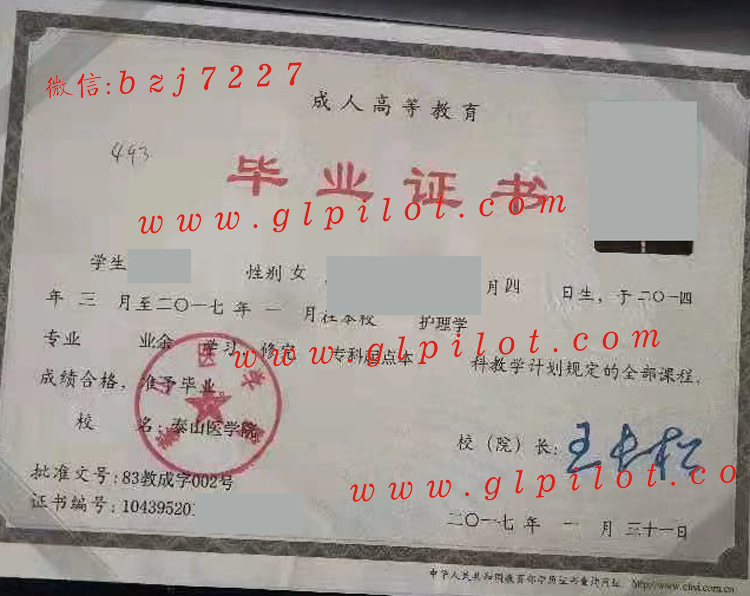 微信:bzj7227
成人高等教育
493
毕业证书
www.glpilot.com
学生 性别 女 , 月四 日生, 于二〇一四
年 三 月至二〇一七 年 一 月在本校 护理学
专业 业余 学习, 修完 专科起点本 科教学计划规定的全部课程,
www.glpilot.com
成绩合格, 准予毕业
校 名: 泰山医学院
校(院)长: 王长松
批准文号: 83教成学002号
www.glpilot.co
证书编号: 104395201
二〇一七 年 一 月 三十一日
中华人民共和国教育部学历证书查询网址: http://www.chsi.com.cn